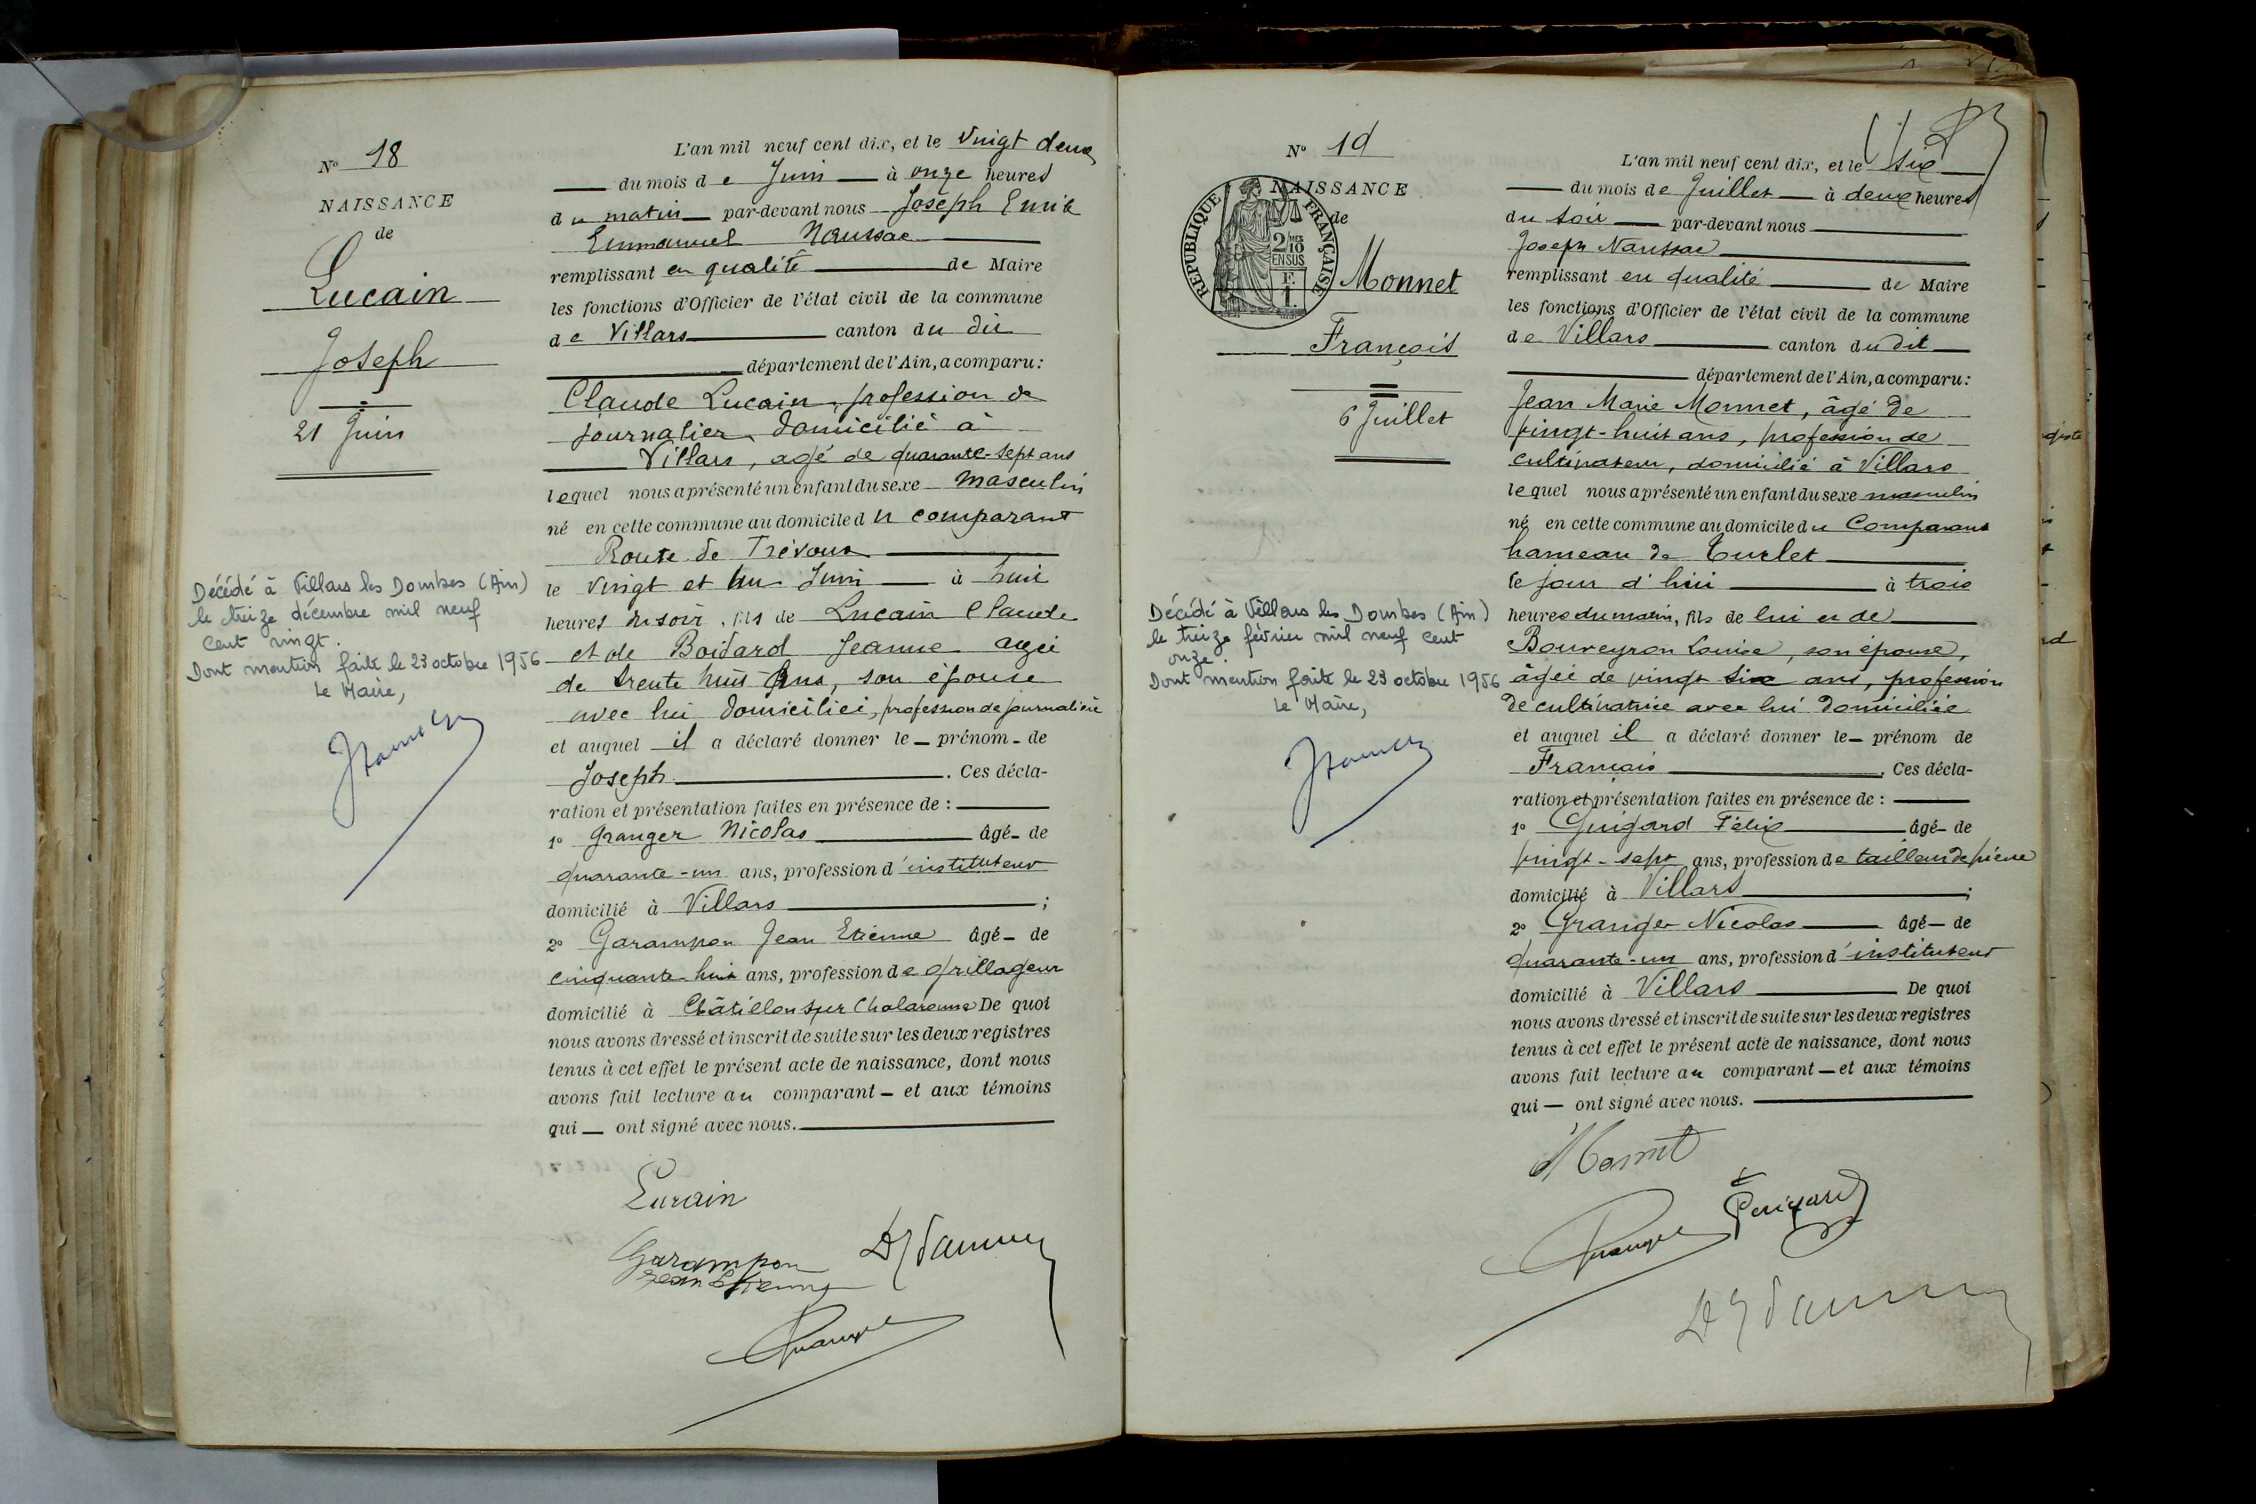 N° 18
NAISSANCE
de
Lucain
Joseph
21 Juin
Décédé à Villars les Dombes (Ain)
le treize décembre mil neuf
cent vingt.
Dont mention faite le 23 octobre 1956
Le Maire,
L'an mil neuf cent dix, et le vingt deux
du mois de Juin à onze heures
du matin par-devant nous Joseph Emile
Emmanuel Naussac
remplissant en qualité de Maire
les fonctions d'Officier de l'état civil de la commune
de Villars canton du dit
département de l'Ain, a comparu:
Claude Lucain, profession de
journalier, domicilié à
Villars, agé de quarante-sept ans
lequel nous a présenté un enfant du sexe masculin
né en cette commune au domicile du comparant
Route de Trévoux
le vingt et un Juin à huit
heures du soir, fils de Lucain Claude
et de Boidard Jeanne agée
de trente huit ans, son épouse
avec lui domiciliée, profession de journalière
et auquel il a déclaré donner le prénom de
Joseph. Ces décla-
ration et présentation faites en présence de :
1° Granger Nicolas âgé de
quarante-un ans, profession d'instituteur
domicilié à Villars ;
2° Garampon Jean Etienne âgé de
cinquante-huit ans, profession de grillageur
domicilié à Châtillon sur Chalaronne De quoi
nous avons dressé et inscrit de suite sur les deux registres
tenus à cet effet le présent acte de naissance, dont nous
avons fait lecture au comparant et aux témoins
qui ont signé avec nous.
Lucain
Garampon
Jean Etienne
N° 19
NAISSANCE
de
REPUBLIQUE FRANÇAISE
2/10 EN SUS
F. 1.
Monnet
François
6 Juillet
Décédé à Villars les Dombes (Ain)
le treize février mil neuf cent
onze.
Dont mention faite le 23 octobre 1956
Le Maire,
L'an mil neuf cent dix, et le six
du mois de Juillet à deux heures
du soir par-devant nous
Joseph Naussac
remplissant en qualité de Maire
les fonctions d'Officier de l'état civil de la commune
de Villars canton du dit
département de l'Ain, a comparu:
Jean Marie Monnet, âgé de
vingt-huit ans, profession de
cultivateur, domicilié à Villars
lequel nous a présenté un enfant du sexe masculin
né en cette commune au domicile du Comparant
hameau de Turlet
le jour d'hui à trois
heures du matin, fils de lui et de
Bouveyron Louise, son épouse,
âgée de vingt six ans, profession
de cultivatrice avec lui domiciliée
et auquel il a déclaré donner le prénom de
François. Ces décla-
ration et présentation faites en présence de :
1° Guigard Félix âgé de
vingt-sept ans, profession de tailleur de pierre
domicilié à Villars ;
2° Granger Nicolas âgé de
quarante-un ans, profession d'instituteur
domicilié à Villars De quoi
nous avons dressé et inscrit de suite sur les deux registres
tenus à cet effet le présent acte de naissance, dont nous
avons fait lecture au comparant et aux témoins
qui ont signé avec nous.
Monnet
Guigard